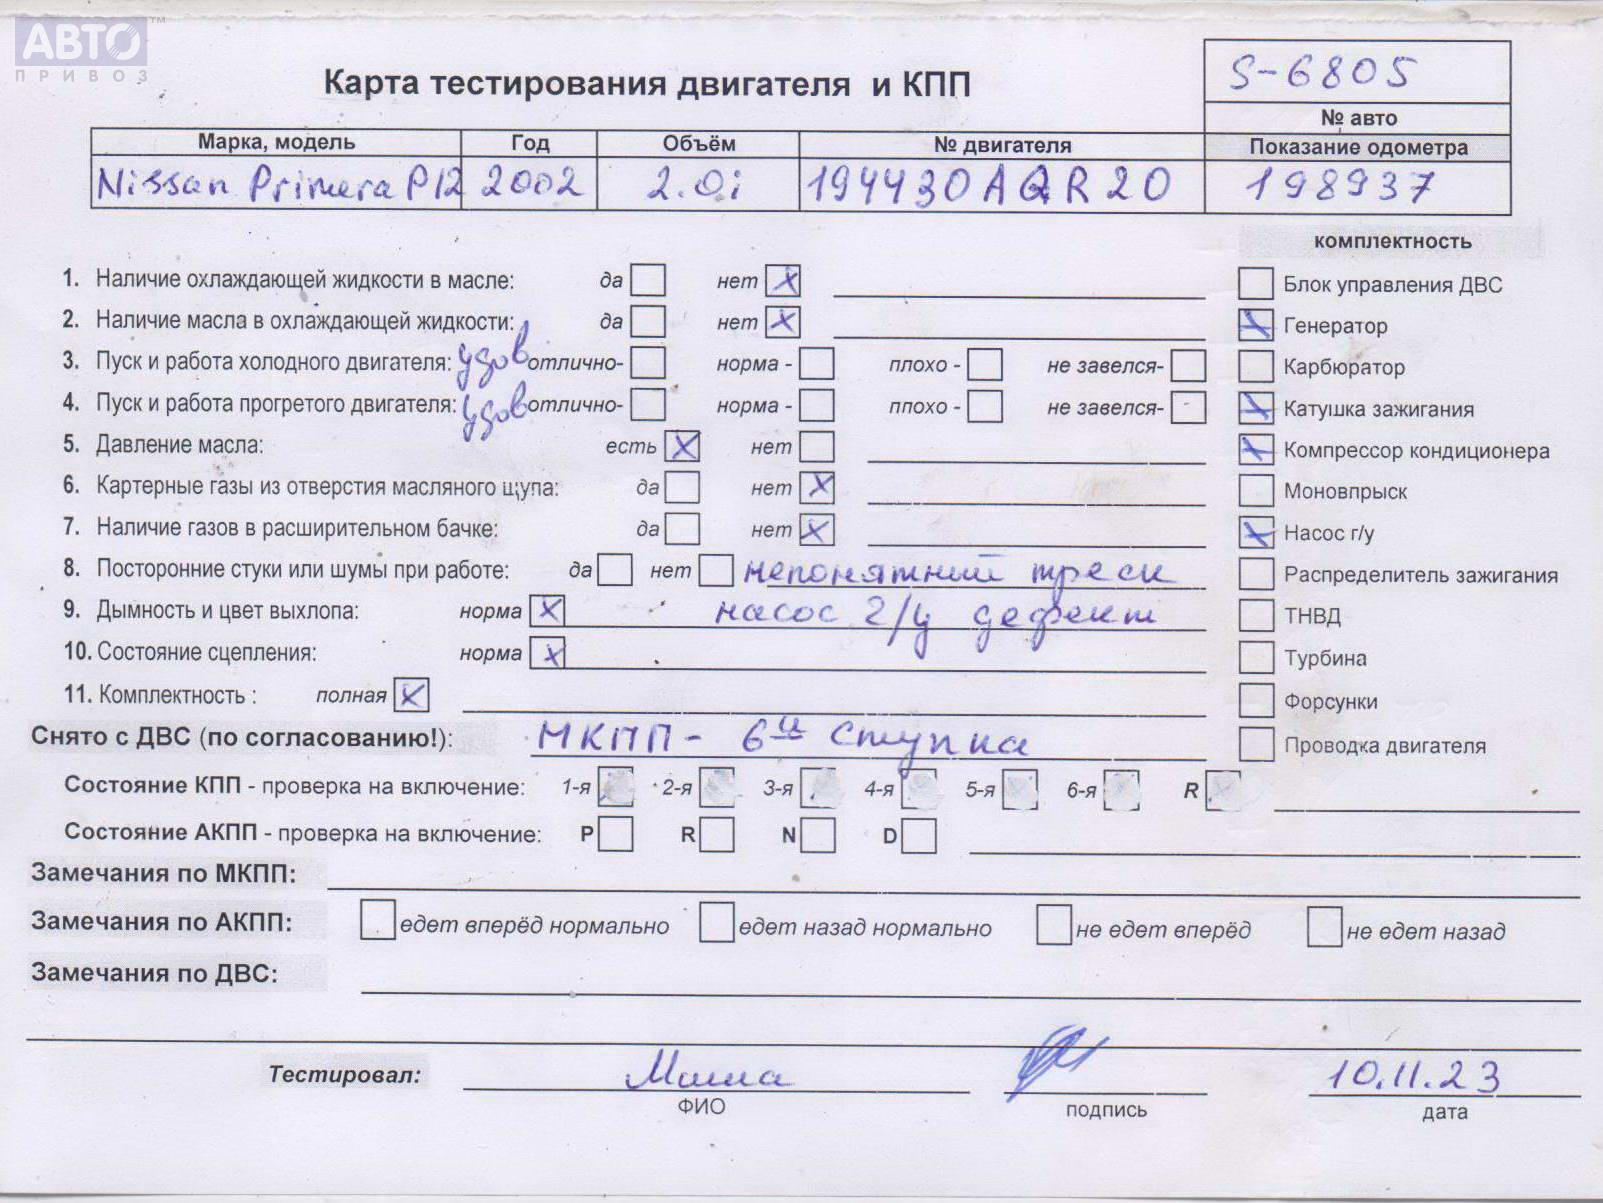 АВТО™
ПРИВОЗ
S-6805
Карта тестирования двигателя и КПП
№ авто
Марка, модель Год Объём № двигателя Показание одометра
Nissan Primera P12 2002 2.0i 194430A QR20 198937
комплектность
1. Наличие охлаждающей жидкости в масле: да нет X
Блок управления ДВС
2. Наличие масла в охлаждающей жидкости: да нет X
X Генератор
3. Пуск и работа холодного двигателя: удов отлично- норма - плохо - не завелся-
Карбюратор
4. Пуск и работа прогретого двигателя: удов отлично- норма - плохо - не завелся-
X Катушка зажигания
5. Давление масла: есть X нет
X Компрессор кондиционера
6. Картерные газы из отверстия масляного щупа: да нет X
Моновпрыск
7. Наличие газов в расширительном бачке: да нет X
X Насос г/у
8. Посторонние стуки или шумы при работе: да нет непонятный треск
Распределитель зажигания
9. Дымность и цвет выхлопа: норма X насос г/у дефект
ТНВД
10. Состояние сцепления: норма X
Турбина
11. Комплектность : полная X
Форсунки
Снято с ДВС (по согласованию!): МКПП - 6и ступка
Проводка двигателя
Состояние КПП - проверка на включение: 1-я 2-я 3-я 4-я 5-я 6-я R
Состояние АКПП - проверка на включение: P R N D
Замечания по МКПП:
Замечания по АКПП: едет вперёд нормально едет назад нормально не едет вперёд не едет назад
Замечания по ДВС:
Тестировал: Миша 10.11.23
ФИО подпись дата